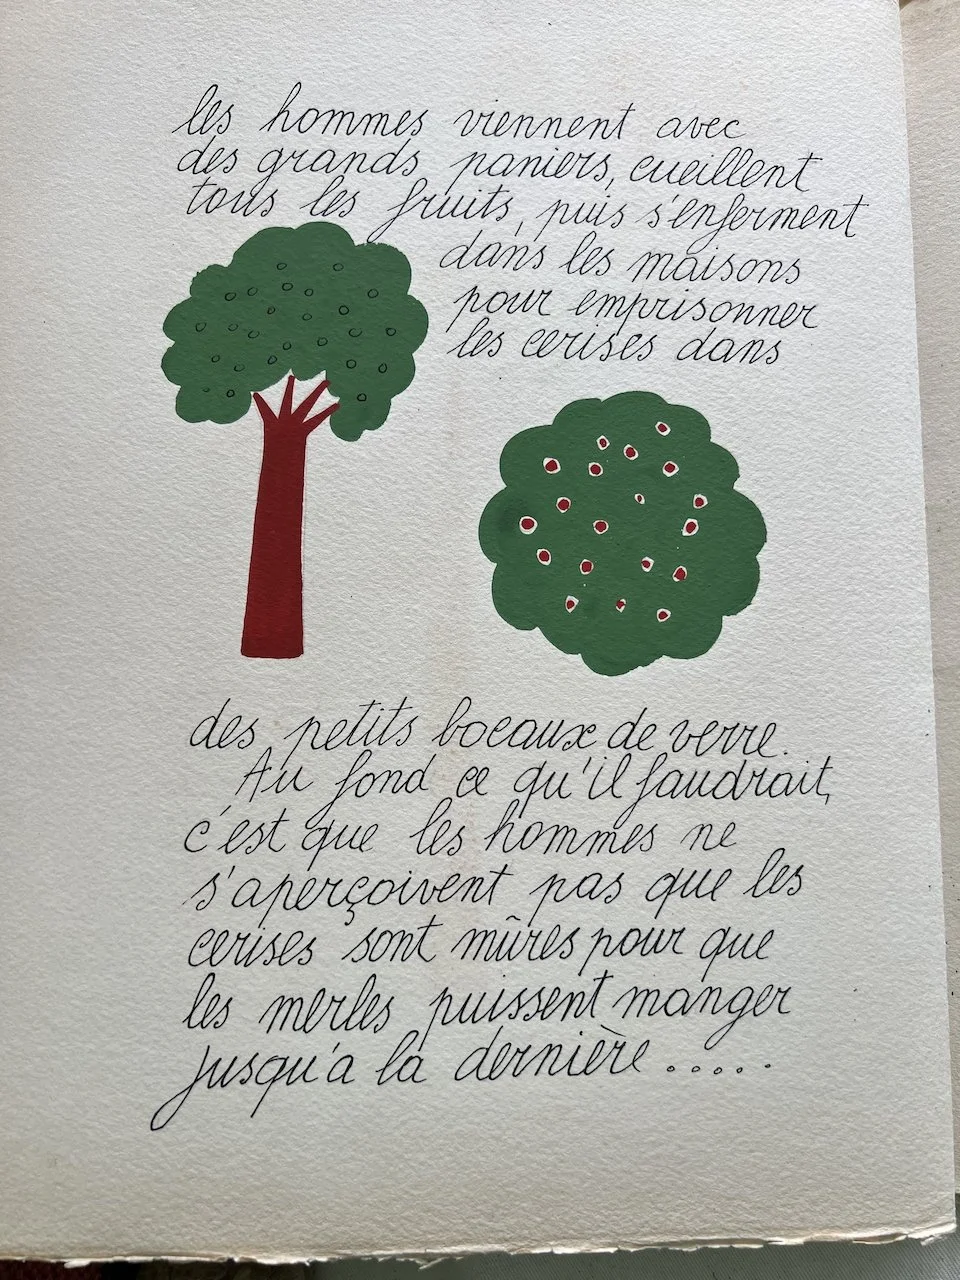 les hommes viennent avec
des grands paniers, cueillent
tous les fruits, puis s'enferment
dans les maisons
pour emprisonner
les cerises dans
des petits bocaux de verre.
Au fond ce qu'il faudrait,
c'est que les hommes ne
s'aperçoivent pas que les
cerises sont mûres pour que
les merles puissent manger
jusqu'à la dernière .....